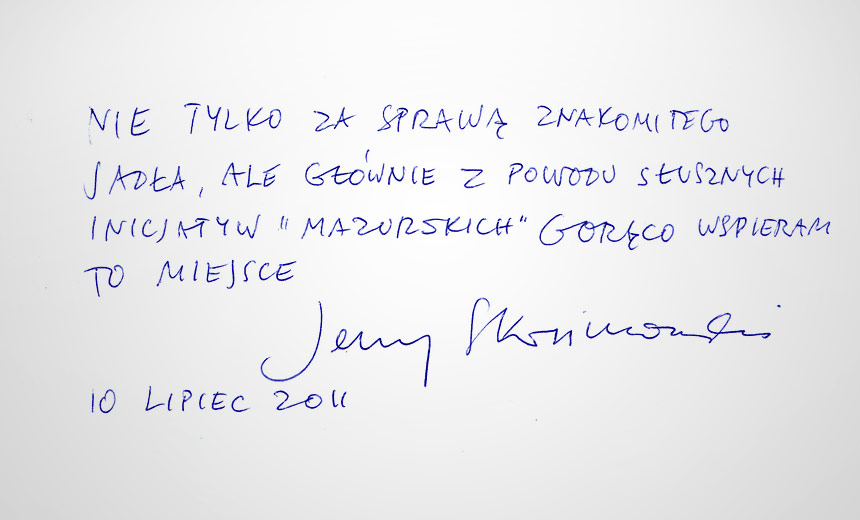 NIE TYLKO ZA SPRAWĄ ZNAKOMITEGO
JADŁA, ALE GŁÓWNIE Z POWODU SŁUSZNYCH
INICJATYW "MAZURSKICH" GORĘCO WSPIERAM
TO MIEJSCE
Jerzy Skolimowski
10 LIPIEC 2011